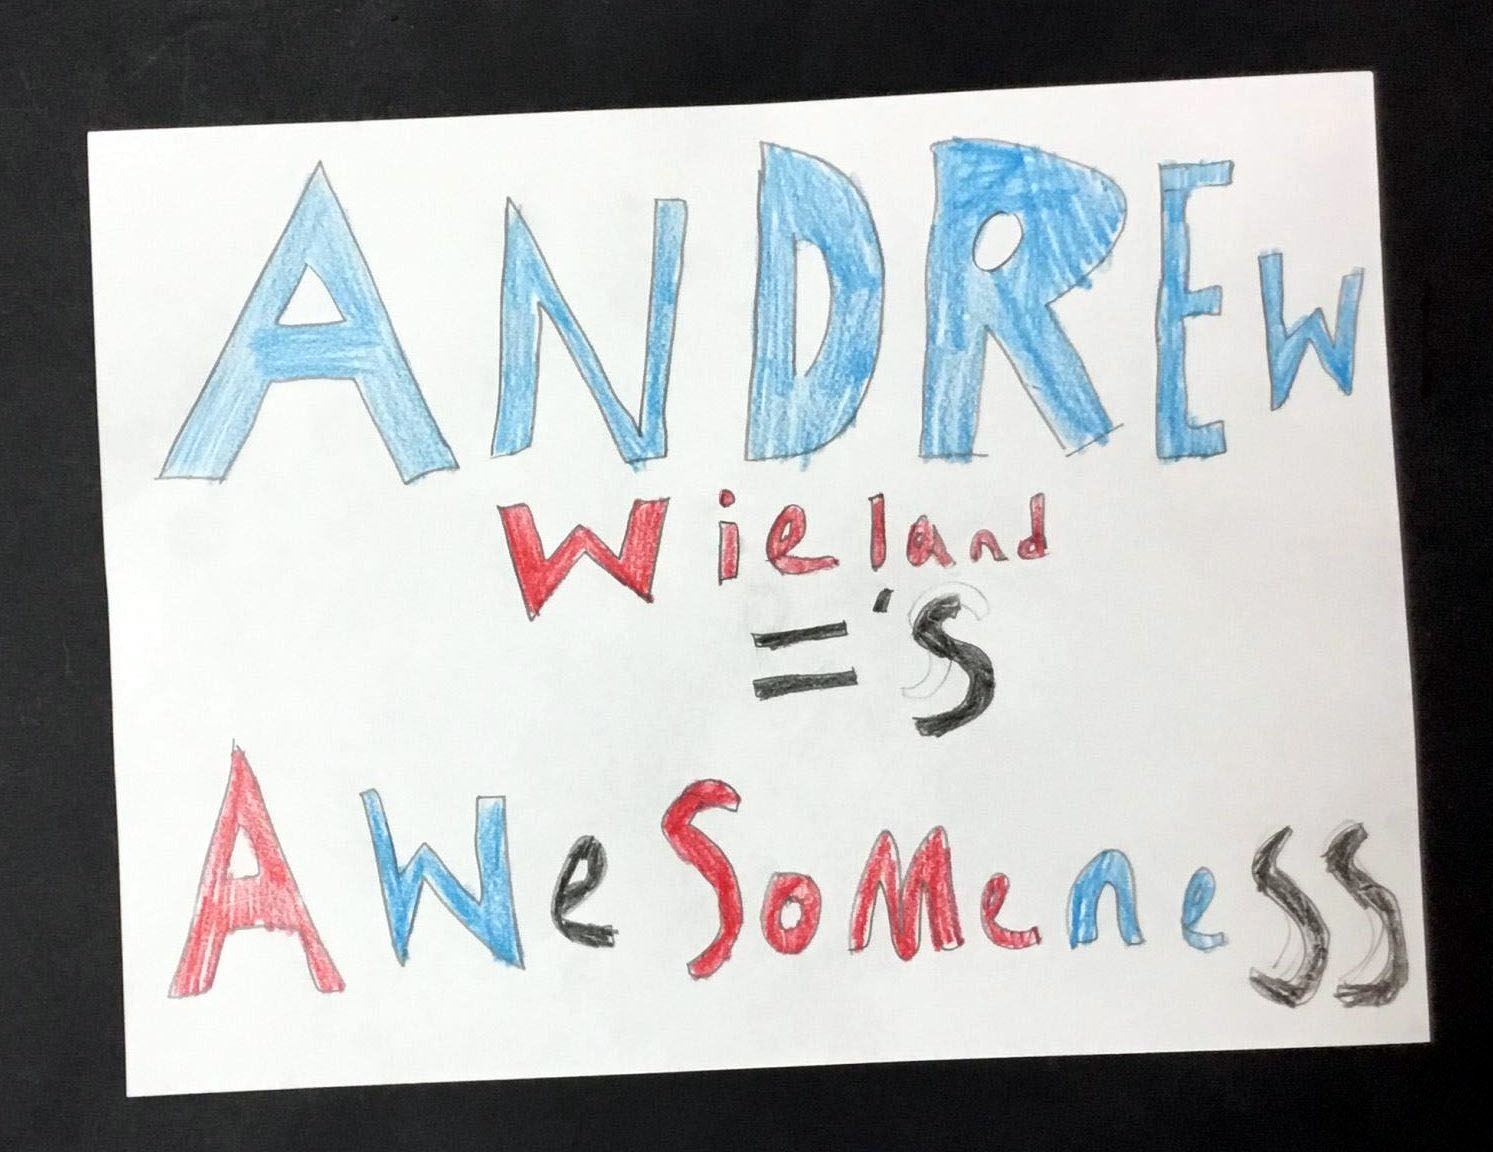 ANDREW
Wieland
='S
AWeSoMeneSS